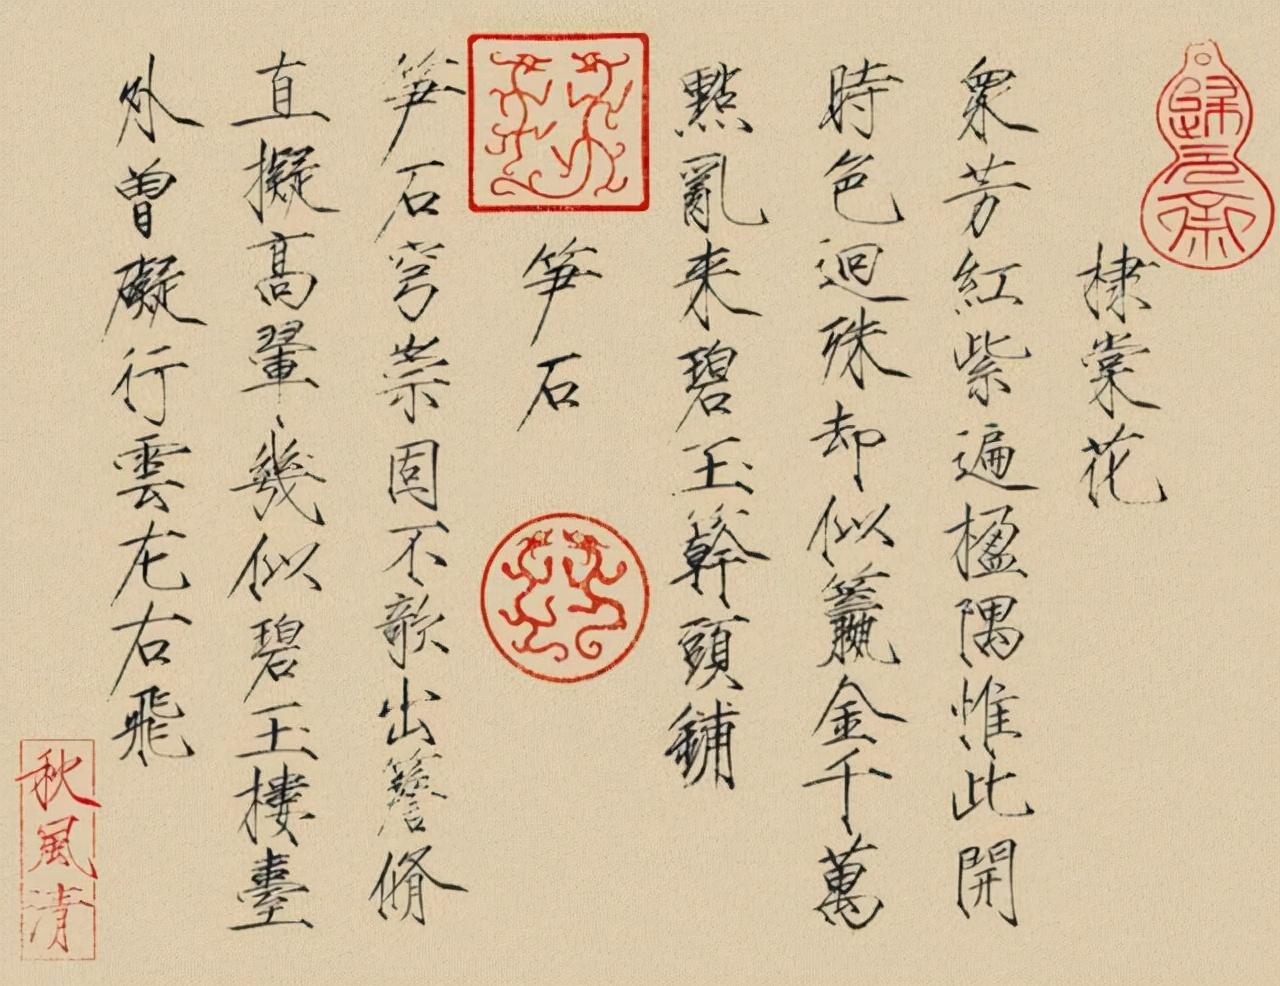 棣棠花
衆芳紅紫遍楹隅惟此開
時色迥殊却似籯金千萬
點亂来碧玉簳頭鋪
笋石
笋石穹崇固不欹出簷脩
直擬髙翬幾似碧玉樓臺
外曾礙行雲左右飛
秋風清